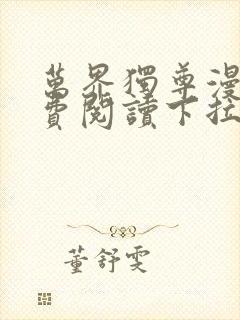 萬界獨尊漫
費閱讀下拉
董舒雯